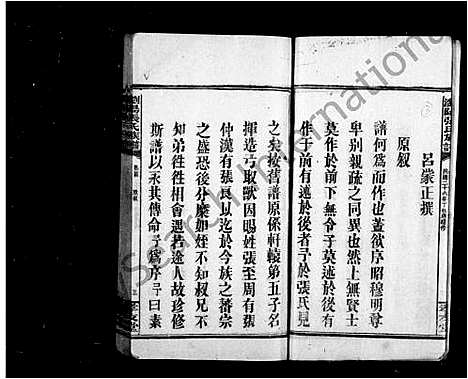 原叙
呂蒙正撰
譜何為而作也蓋欲序昭穆明尊
卑別親疏之同異也然上無賢士
莫作於前下無令子莫述於後有
作於前有述於後者予於張氏見
之矣按舊譜原係軒轅第五子名
揮造弓取獸因賜姓張至周有張
仲漢有張良以迄於今族之蕃宗
之盛恐後分縻如姪不知叔兄不
知弟徃徃相會遇若途人故珍修
斯譜以永其傳命予為序予曰素
Search International